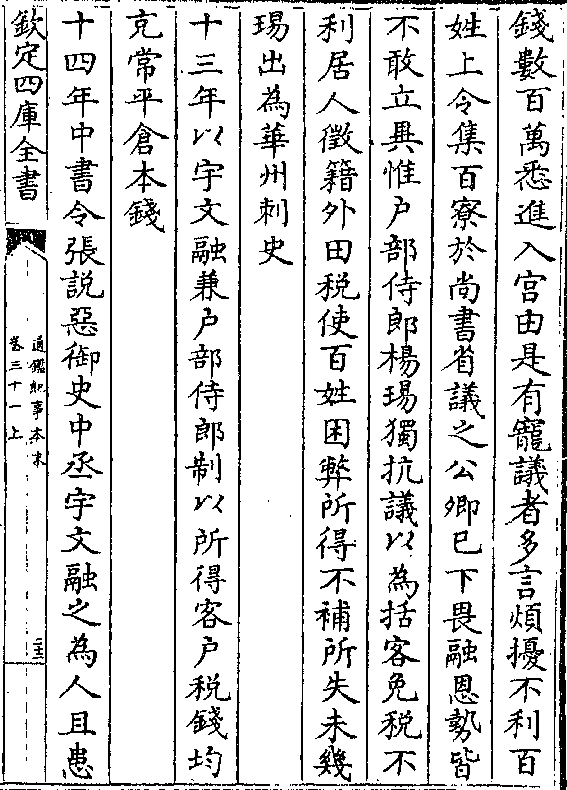 錢數百萬悉進入宮由是有寵議者多言煩擾不利百
姓上令集百寮於尚書省議之公卿已下畏融恩勢皆
不敢立異惟户部侍郎楊瑒獨抗議以為括客免税不
利居人徵籍外田税使百姓困弊所得不補所失未幾
瑒出為華州刺史
十三年以宇文融兼户部侍郎制以所得客户税錢均
充常平倉本錢
十四年中書令張說惡御史中丞宇文融之為人且患
欽定四庫全書
通鑑紀事本末
卷三十一上
二十三